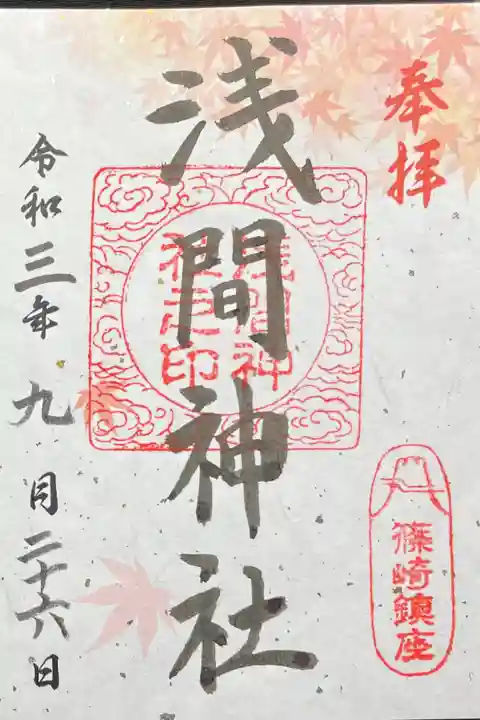 奉拝
篠崎鎮座
浅間神社
浅間神
社之印
令和三年九月二十六日